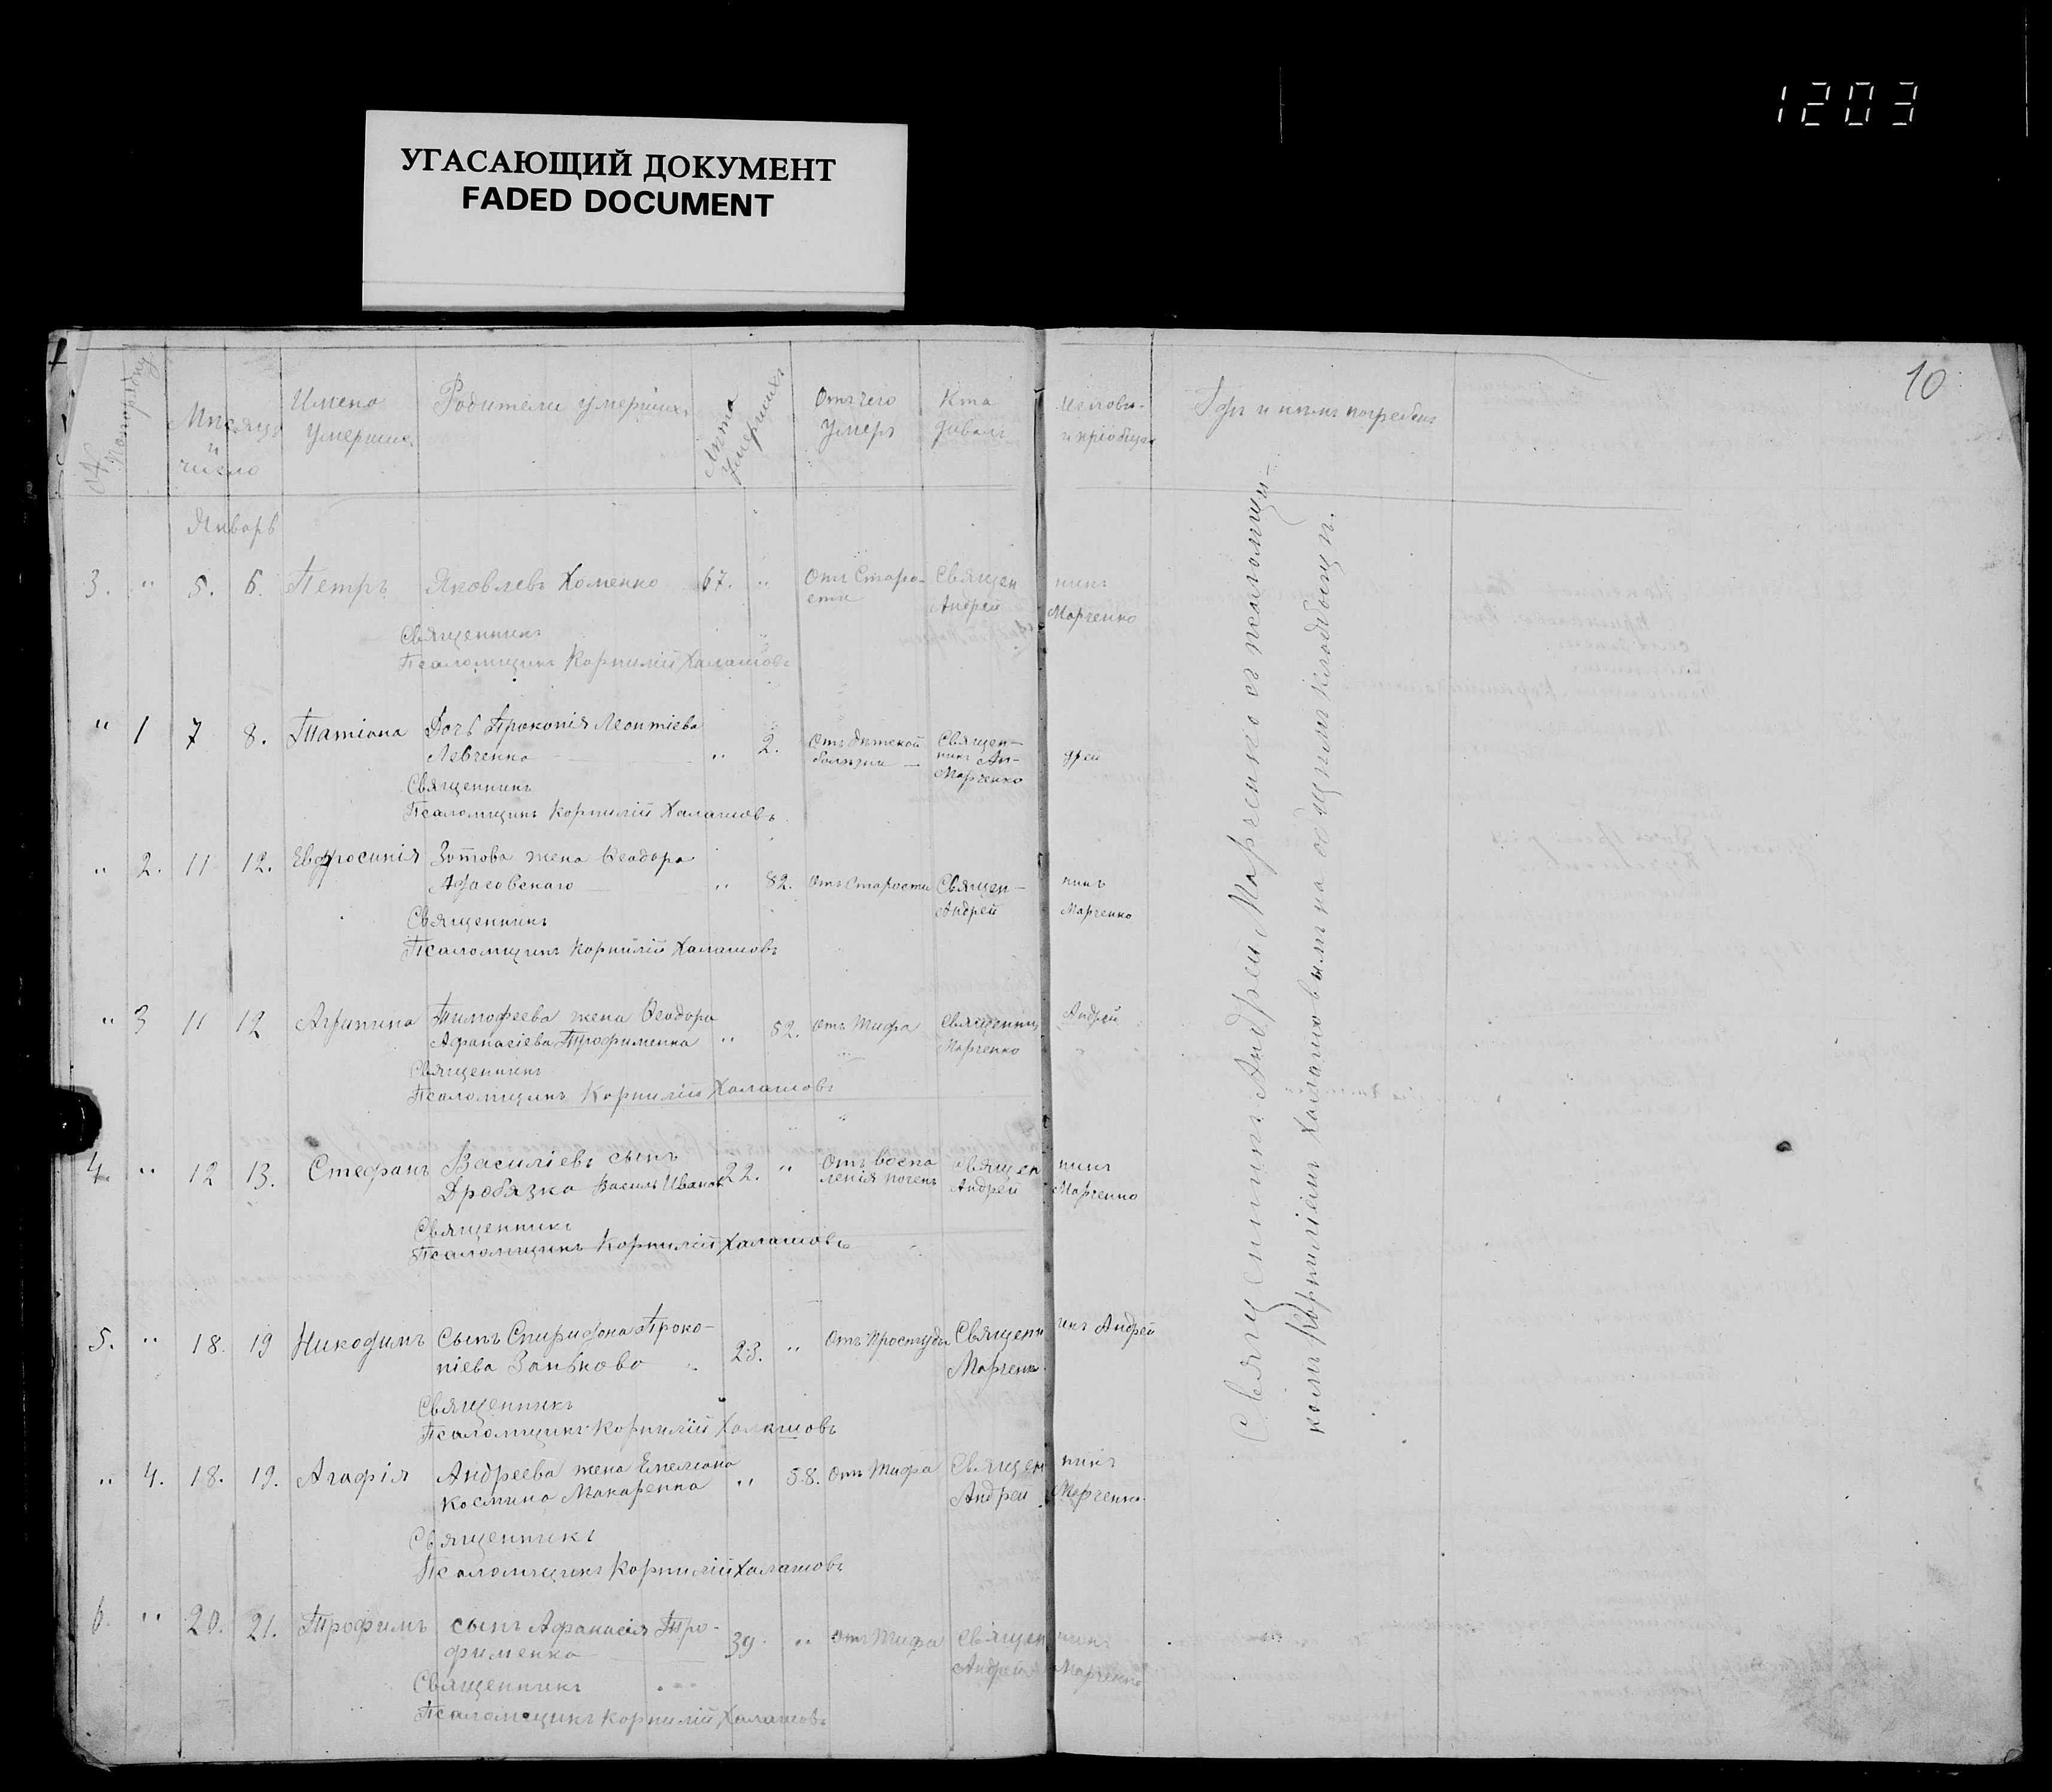 1203
УГАСАЮЩИЙ ДОКУМЕНТ
FADED DOCUMENT
10
№
Мѣсяцъ
и
число
Имена
умершихъ
Родители умершихъ
Лѣта
умершихъ
Отъ чего
умеръ
Кто
исповѣ-
Гдѣ и кѣмъ погребенъ
Январь
3. " 5. 6. Петръ Яковлевъ Хоменко 67. " Отъ Старо- Священ никъ
сти Андрей Марченко
Священникъ
Псаломщикъ Корнилій Халатовъ
" 1 7 8. Татіана Дочь Прокопія Леонтіева
Левченко " 2. Отъ дѣтской Священ- дрей
болѣзни никъ Ан-
Марченко
Священникъ
Псаломщикъ Корнилій Халатовъ
" 2. 11 12. Евфросинія Зотова жена Ѳеодора
" 82. Отъ Старости Священ- никъ
Андрей Марченко
Священникъ
Псаломщикъ Корнилій Халатовъ
" 3 11 12 Агрипина Тимофеева жена Ѳеодора
Афанасіева Трофименка " 52. Отъ Тифа Священникъ Андрей
Марченко
Священникъ
Псаломщикъ Корнилій Халатовъ
4. " 12 13. Стефанъ Василіевъ сынъ 22. " Отъ воспа Священ никъ
Дробязка ленія почекъ Андрей Марченко
Священникъ
Псаломщикъ Корнилій Халатовъ
5. " 18. 19 Никодимъ Сынъ Спиридона Проко- 23. " Отъ Простуды Священн икъ Андрей
піева Занькова Марченко
Священникъ
Псаломщикъ Корнилій Халатовъ
" 4. 18. 19. Агафія Андреева жена Емеліана " 58. Отъ Тифа Священ никъ
Космина Макаренка Андрей Марченко
Священникъ
Псаломщикъ Корнилій Халатовъ
6. " 20. 21. Трофимъ сынъ Афанасія Тро- 39. " отъ Тифа Священ никъ
фименка Андрей Марченко
Священникъ
Псаломщикъ Корнилій Халатовъ
Священникъ Андрей Марченко съ псаломщи-
комъ Корниліемъ Халатовымъ на общемъ кладбищѣ.